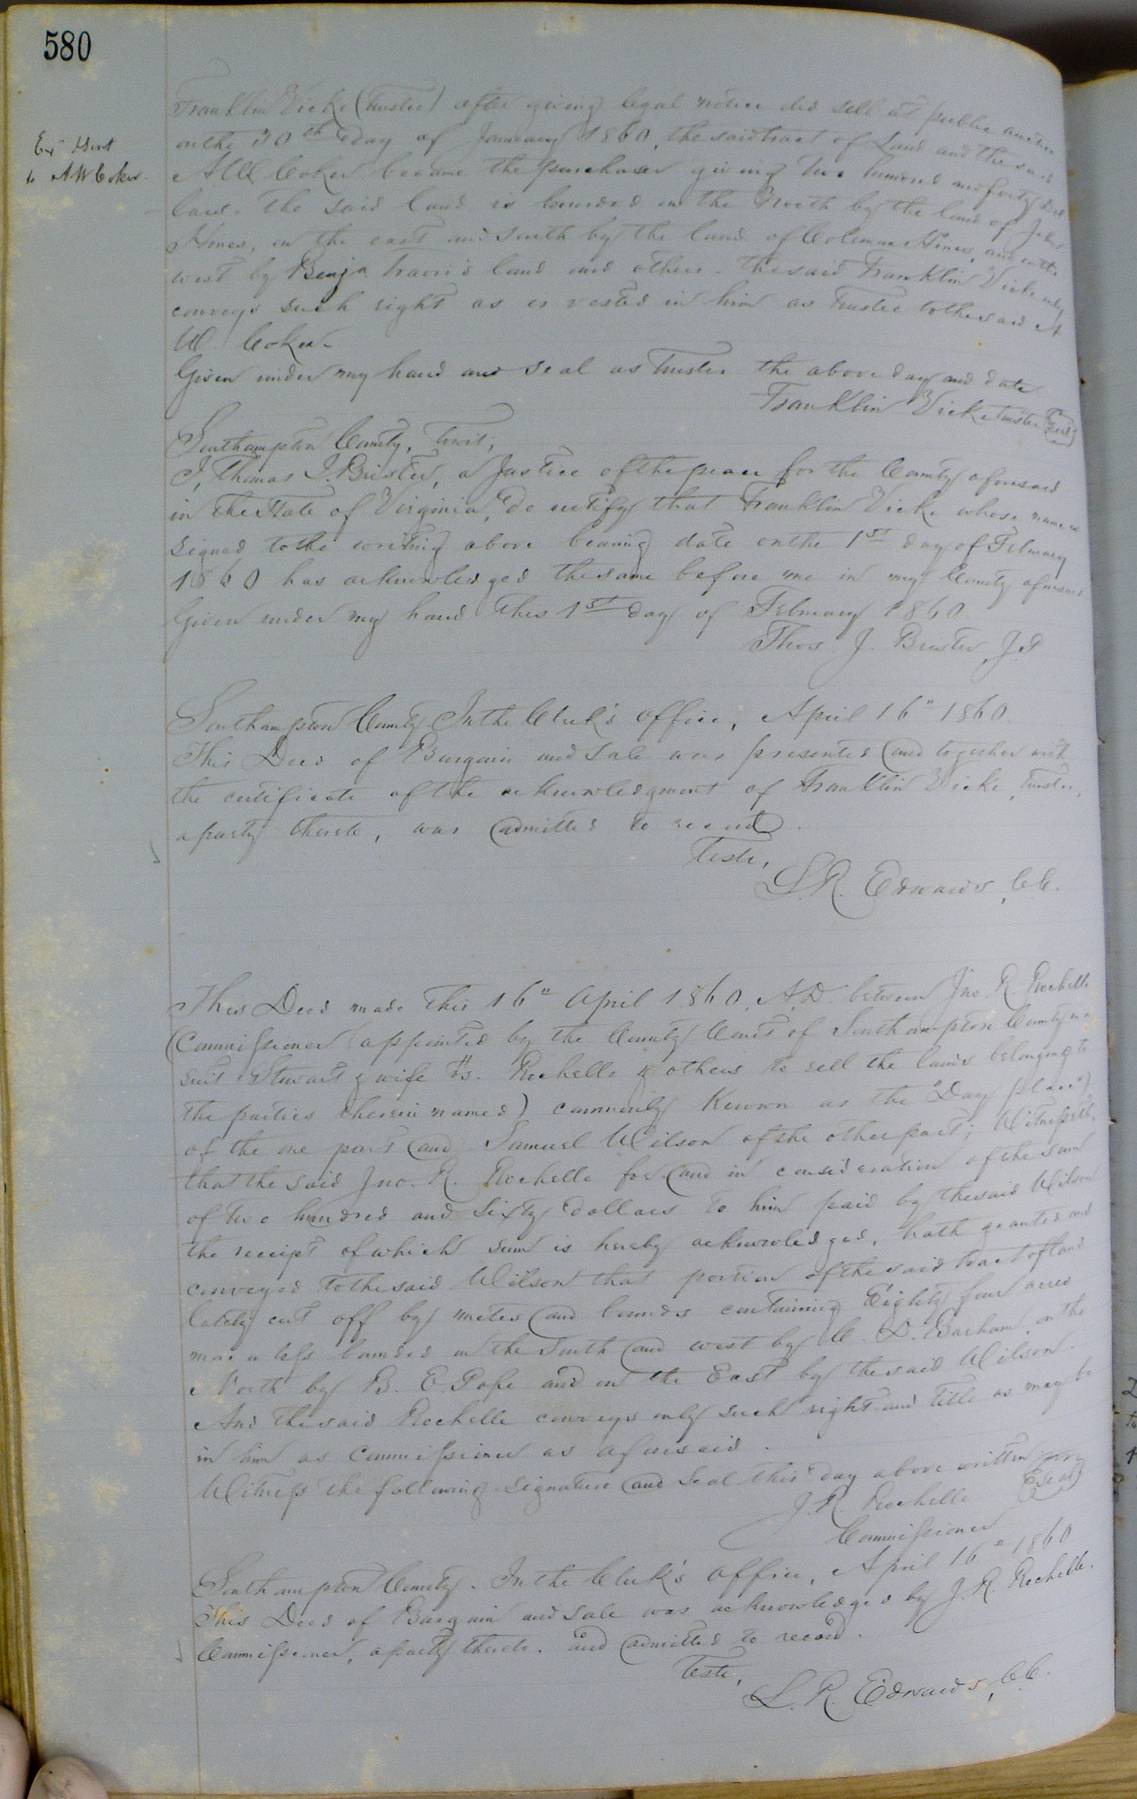 580
Exd & sent
to A W Coker.
Franklin Vick (Trustee) after giving legal notice did sell at public auction
on the 30th day of January 1860, the said tract of Land and the said
A W Coker became the purchaser giving two hundred and forty
The said land is bounded on the North by the land of John
Hines, on the east and South by the land of Coleman Hines, and on the
west by Benja Travis's land and others. The said Franklin Vick only
conveys such right as is vested in him as Trustee to the said A
W. Coker.
Given under my hand and seal as Trustee the above day and date
Franklin Vick Trustee Seal
Southampton County, Towit;
I, Thomas J. Brister, a Justice of the peace for the County aforesaid
in the State of Virginia, do certify that Franklin Vick whose name is
signed to the writing above bearing date on the 1st day of February
1860 has acknowledged the same before me in my County aforesaid
Given under my hand this 1st day of February 1860.
Thos. J. Brister, J.P
Southampton County. In the Clerk's office, April 16" 1860.
This Deed of Bargain and Sale was presented and together with
the certificate of the acknowledgment of Franklin Vick, Trustee,
a party thereto, was admitted to record.
Teste,
L. R. Edwards, C.C.
This Deed made this 16" April 1860. A.D. between Jno. R. Rochelle
(Commissioner appointed by the County Court of Southampton County in a
suit Stewart & wife vs. Rochelle & others to sell the lands belonging to
the parties therein named) commonly known as the "Day place"
of the one part and Samuel Wilson of the other part; Witnesseth,
that the said Jno. R. Rochelle for and in consideration of the sum
of two hundred and sixty dollars to him paid by the said Wilson
the receipt of which sum is hereby acknowledged, hath granted and
conveyed to the said Wilson that portion of the said tract of land
lately cut off by metes and bounds containing Eighty four acres
more or less bounded on the South and west by C. D. Barham, on the
North by B. E. Pope and on the East by the said Wilson.
And the said Rochelle conveys only such right and title as may be
in him as Commissioner as aforesaid.
Witness the following signature and seal this day above written
J. R. Rochelle Seal
Commissioner
Southampton County. In the Clerk's office, April 16" 1860
This Deed of Bargain and Sale was acknowledged by J. R. Rochelle.
Commissioner, a party thereto. and admitted to record.
Teste,
L. R. Edwards, C.C.